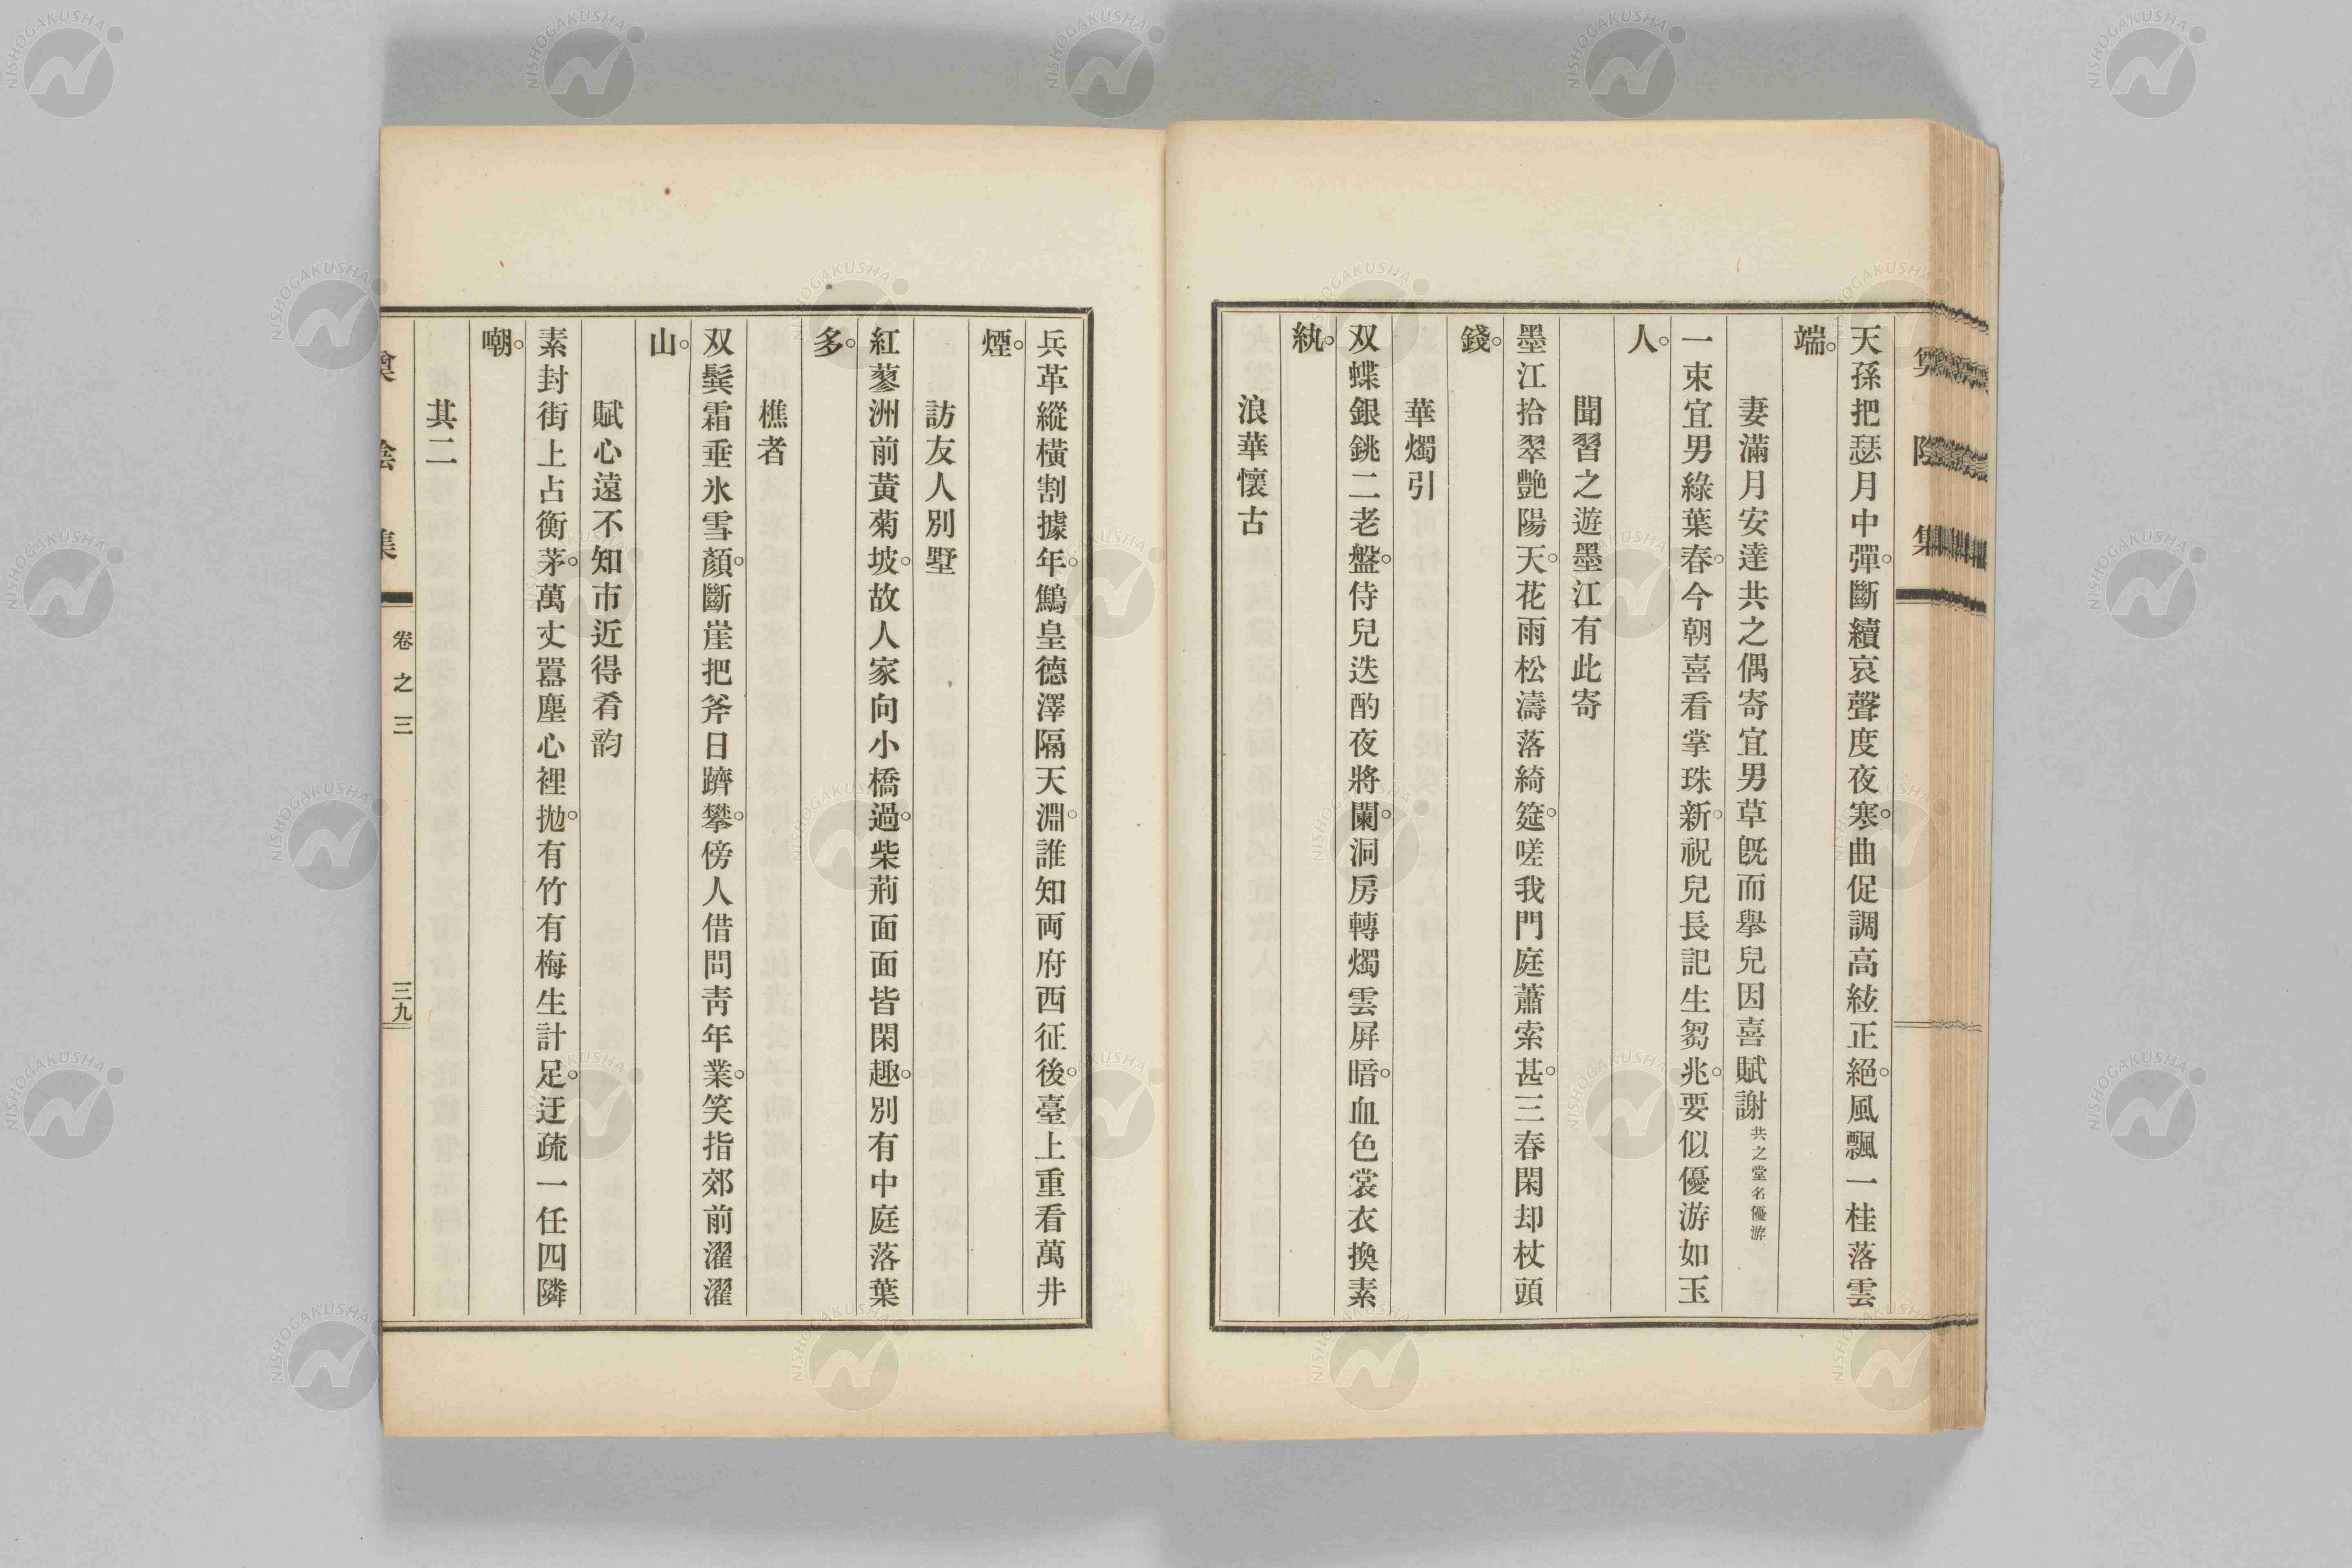 天孫把瑟月中彈。斷續哀聲度夜寒。曲促調高絃正絕。風飄一桂落雲
端。
妻滿月安達共之偶寄宜男草旣而擧兒因喜賦謝共之堂名優游
一束宜男綠葉春。今朝喜看掌珠新。祝兒長記生芻兆。要似優游如玉
人。
聞習之遊墨江有此寄
墨江拾翠艷陽天。花雨松濤落綺筵。嗟我門庭蕭索甚。三春閑却杖頭
錢。
華燭引
双蝶銀銚二老盤。侍兒迭酌夜將闌。洞房轉燭雲屛暗。血色裳衣換素
紈。
浪華懷古
兵革縱橫割據年。鷦皇德澤隔天淵。誰知両府西征後。臺上重看萬井
煙。
訪友人別墅
紅蓼洲前黃菊坡。故人家向小橋過。柴荊面面皆閑趣。別有中庭落葉
多。
樵者
双鬂霜垂氷雪顏。斷崖把斧日躋攀。傍人借問靑年業。笑指郊前濯濯
山。
賦心遠不知市近得肴韵
素封街上占衡茅。萬丈囂塵心裡拋。有竹有梅生計足。迂疏一任四隣
嘲。
其二
卷之三
三九
NISHOGAKUSHA